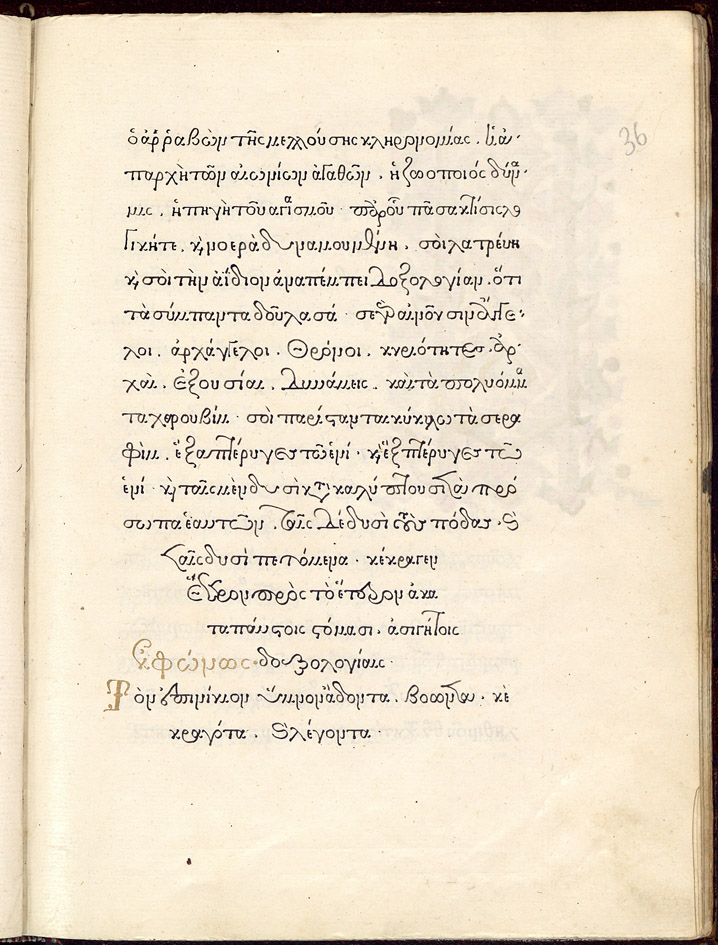 36
ὁ ἀρραβὼν τῆς μελλούσης κληρονομίας · ἡ ἀ
παρχὴ τῶν αἰωνίων ἀγαθῶν · ἡ ζωοποιὸς δύνα
μις · ἡ πηγὴ τοῦ ἁγιασμοῦ · παρ' οὗ πᾶσα κτίσις λο
γικήτε, καὶ νοερὰ δυναμουμένη, σοὶ λατρεύει
καὶ σοὶ τὴν ἀΐδιον ἀναπέμπει δοξολογίαν · ὅτι
τὰ σύμπαντα δοῦλα σά · σὲ γὰρ αἰνοῦσιν ἄγγε
λοι · ἀρχάγγελοι · Θρόνοι · κυριότητες · ἀρ
χαὶ · ἐξουσίαι · Δυνάμεις · καὶ τὰ πολυόμμα
τα χερουβίμ · σοὶ παρίστανται κύκλω τὰ σερα
φὶμ · ἓξ αἱ πτέρυγες τῶ ἑνί · καὶ ἓξ πτέρυγες τῶ
ἑνί · καὶ ταῖς μὲν δυσὶ κατακαλύπτουσι τὰ πρό
σωπα ἑαυτῶν · ταῖς δὲ δυσὶ τοὺς πόδας · καὶ
ταῖς δυσὶ πετόμενα · κέκραγεν
ἕτερον πρὸς τὸ ἕτερον ἀκα
ταπαύστοις στόμασι · ἀσιγήτοις
Ἐκφώνως · δοξολογίαις ·
Τὸν ἐπινίκιον ὕμνον ἄδοντα · βοῶντα · κε
κραγότα · καὶ λέγοντα ·